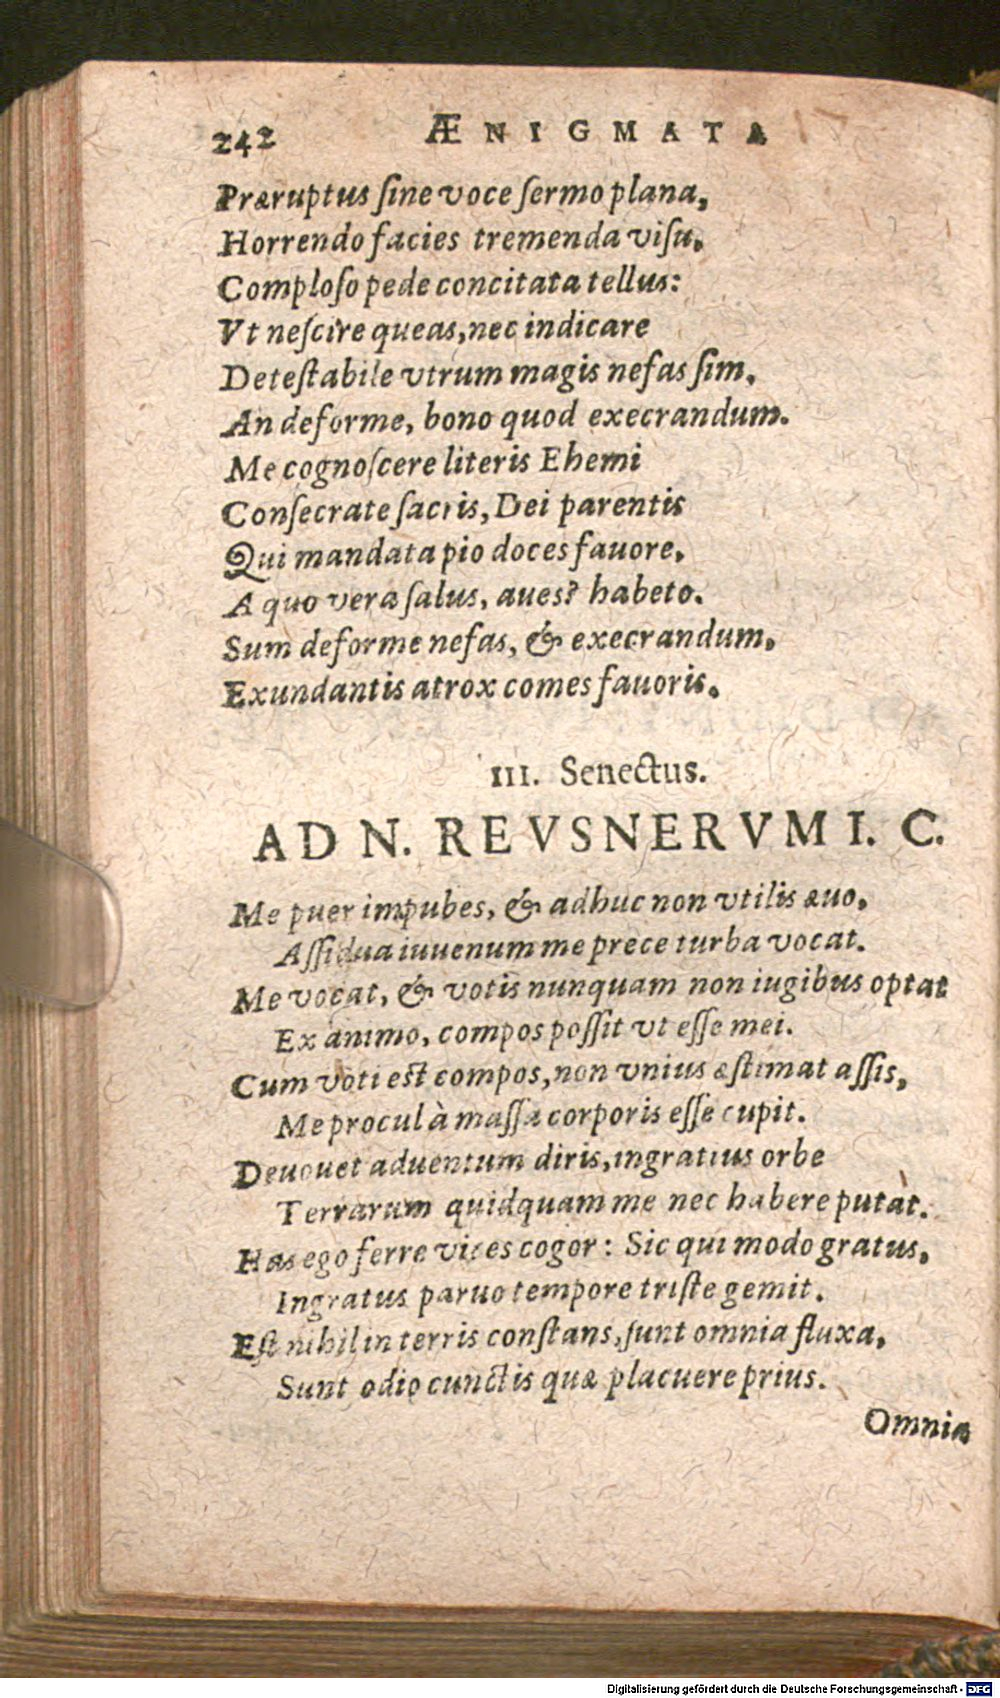 242 ÆNIGMATA
Præruptus ſine voce ſermo plana,
Horrendo facies tremenda viſu,
Comploſo pede concitata tellus:
Vt neſcire queas, nec indicare
Deteſtabile vtrum magis nefas ſim,
An deforme, bono quod execrandum.
Me cognoſcere literis Ehemi
Conſecrate ſacris, Dei parentis
Qui mandata pio doces fauore,
A quo vera ſalus, aues? habeto.
Sum deforme nefas, & execrandum,
Exundantis atrox comes fauoris.
III. Senectus.
AD N. REVSNERVM I. C.
Me puer impubes, & adhuc non vtilis æuo,
Aſſidua iuuenum me prece turba vocat.
Me vocat, & votis nunquam non iugibus optat
Ex animo, compos poſſit vt eſſe mei.
Cum voti eſt compos, non vnius æſtimat aſſis,
Me procul à maſſa corporis eſſe cupit.
Deuouet aduentum diris, ingratius orbe
Terrarum quidquam me nec habere putat.
Has ego ferre vices cogor: Sic qui modo gratus,
Ingratus paruo tempore triſte gemit.
Eſt nihil in terris conſtans, ſunt omnia fluxa,
Sunt odio cunctis quæ placuere prius.
Omnia
Digitalisierung gefördert durch die Deutsche Forschungsgemeinschaft - DFG